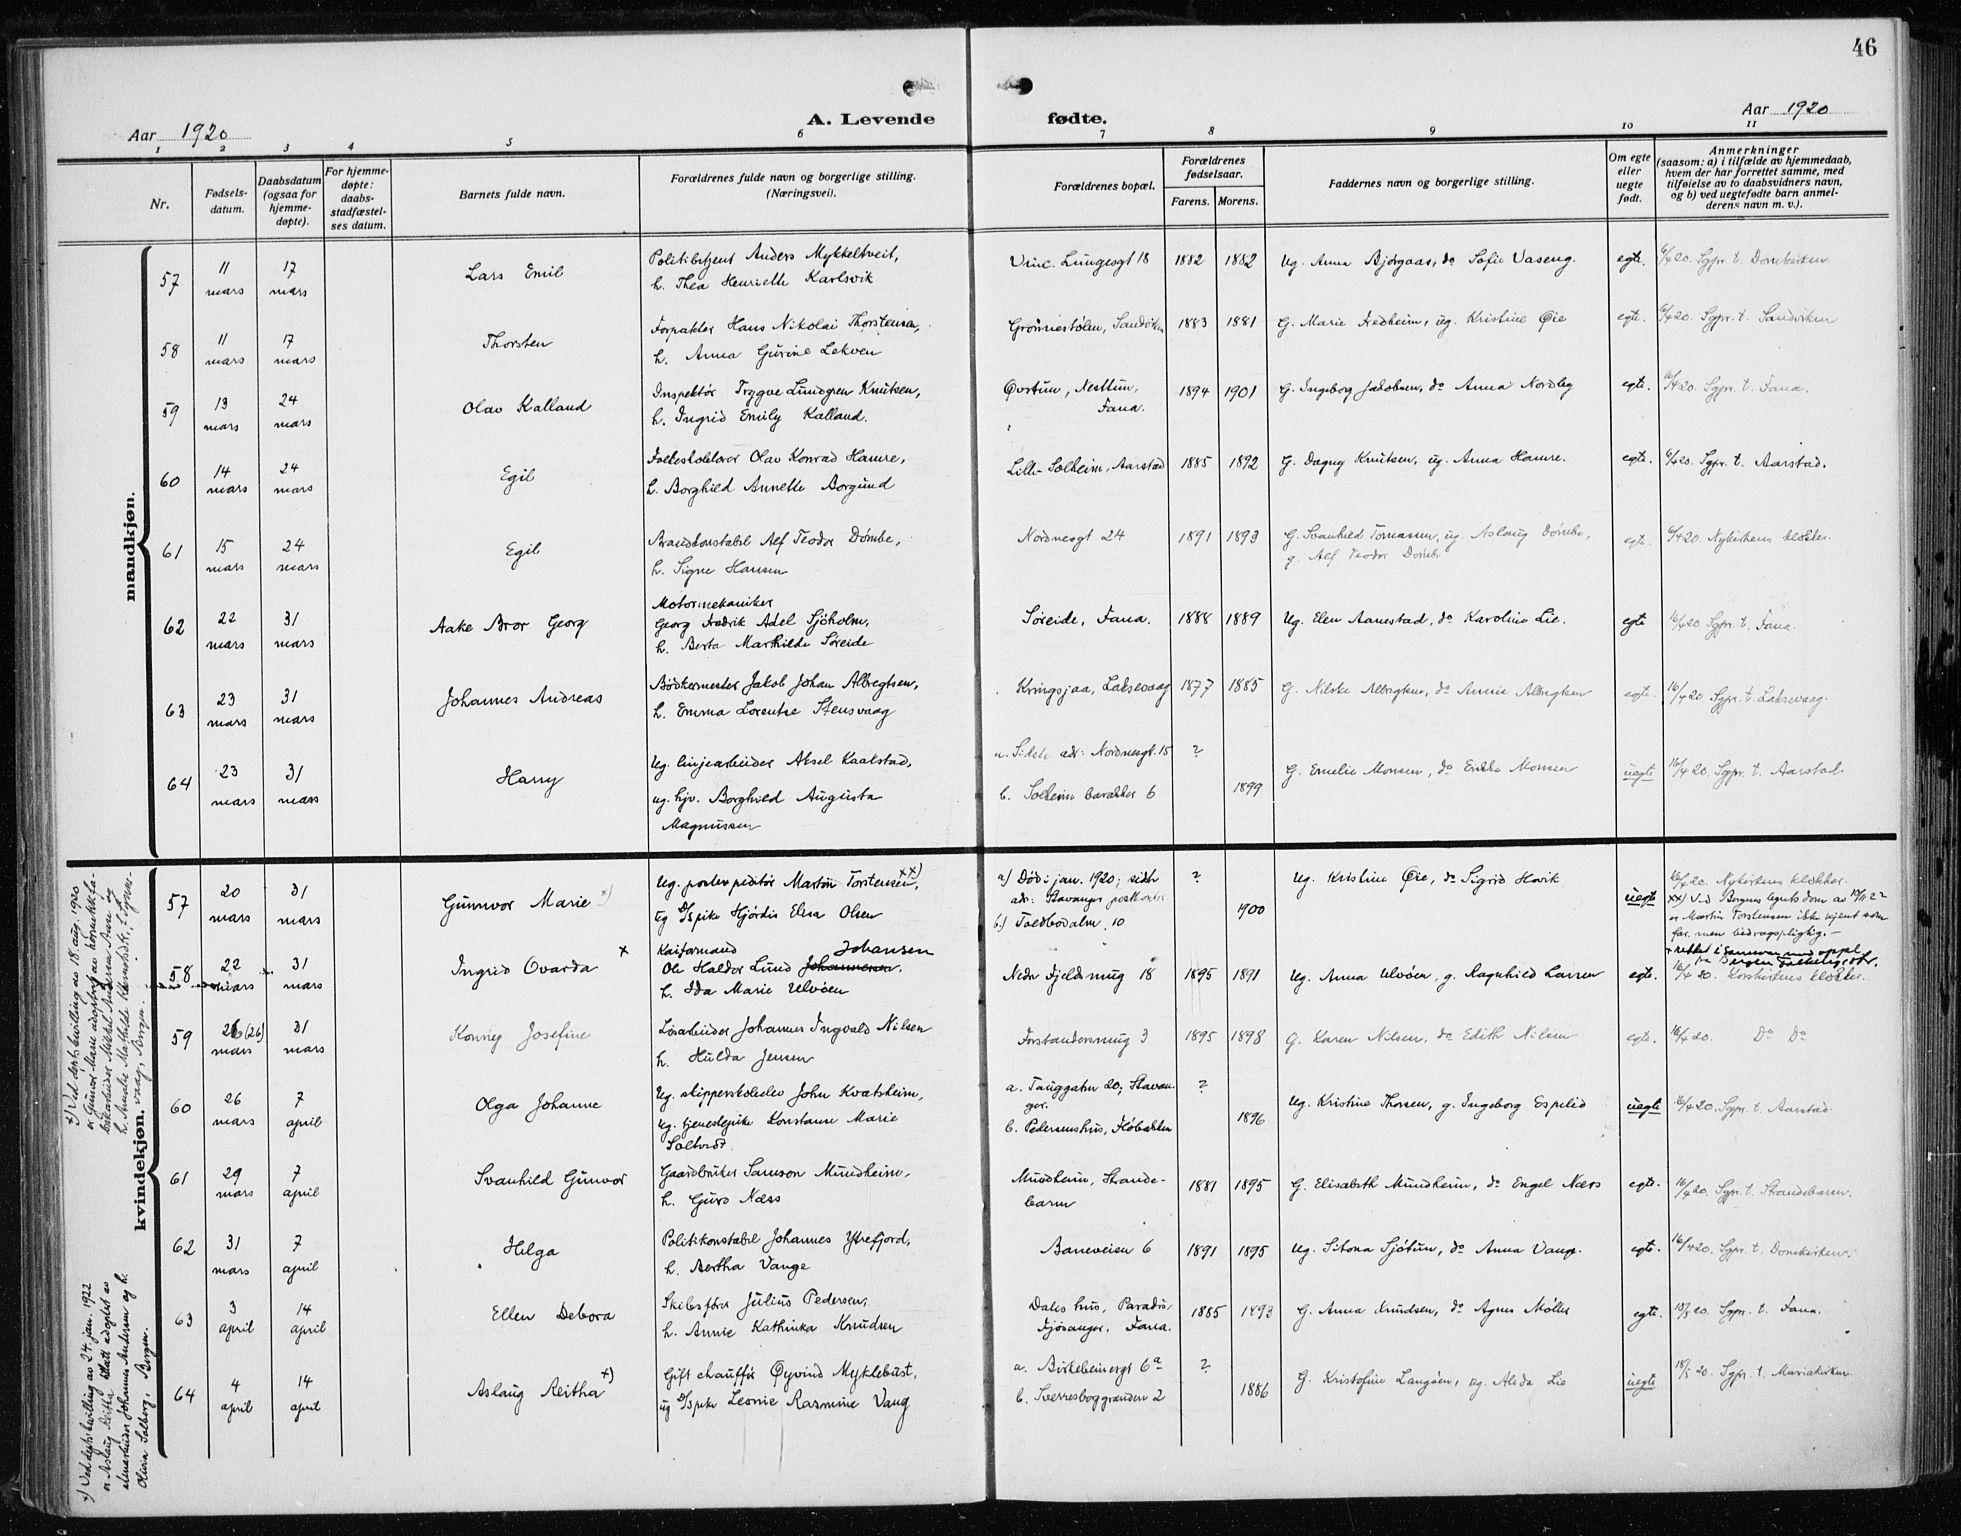 46
Aar 1920
A. Levende fødte.
Aar 1920
1 2 3 4 5 6 7 8 9 10 11
Nr.
Fødsels-
datum.
Daabsdatum
(ogsaa for
hjemme-
døpte).
For hjemme-
døpte:
daabs-
stadfæstel-
ses datum.
Barnets fulde navn.
Forældrenes fulde navn og borgerlige stilling.
(Næringsvei).
Forældrenes bopæl.
Forældrenes
fødselsaar.
Farens. Morens.
Faddernes navn og borgerlige stilling.
Om egte
eller
uegte
født.
Anmerkninger
(saasom: a) i tilfælde av hjemmedaab,
hvem der har forrettet samme, med
tilføielse av to daabsvidners navn,
og b) ved uegtefødte barn anmel-
derens navn m. v.).
mandkjøn.
57 11 mars 17 mars Lars Emil
Politibetjent Anders Mykkeltveit,
h. Thea Henriette Karlsvik
Vinc. Lungesgt 18 1882 1882 Ug. Anna Bjørgaas, do Sofie Vaseng. egte. 6/4 20. Sgpr. t. Domkirken.
58 11 mars 17 mars Thorsten
Forpakter Hans Nikolai Thorstensen,
h. Anna Gurine Lekven
Grønnestølen, Sandviken 1883 1881 G. Marie Hedheim, ug. Kristine Øie egte. 6/4 20. Sgpr. t. Sandviken
59 13 mars 24 mars Olav Kalland
Inspektør Trygve Lundgren Knutsen,
h. Ingrid Emily Kalland.
Øvstun, Nesttun,
Fana.
1894 1901 G. Ingeborg Jakobsen, do Anna Nordby egte. 16/4 20. Sgpr. t. Fana.
60 14 mars 24 mars Egil
Folkeskolelærer Olav Konrad Hamre,
h. Borghild Annette Borgund
Lille-Solheim, Aarstad 1885 1892 G. Dagny Knutsen, ug. Anna Hamre. egte. 6/4 20. Sgpr. t. Aarstad.
61 15 mars 24 mars Egil
Brandkonstabel Alf Teodor Dømbe,
h. Signe Hansen
Nordnesgt 24 1891 1893 G. Svanhild Tomassen, ug. Aslaug Dømbe,
g. Alf Teodor Dømbe
egte. 6/4 20. Nykirkens klokker.
62 22 mars 31 mars Aake Bror Georg
Motormekaniker
Georg Fredrik Adel Sjöholm,
h. Berta Marthilde Søreide
Søreide, Fana. 1888 1889 Ug. Elen Aanestad, do Karoline Lie. egte 16/4 20. Sgpr. t. Fana.
63 23 mars 31 mars Johannes Andreas
Bødkermester Jakob Johan Albregtsen,
h. Emma Lorentse Stensvaag
Kringsjaa, Laksevaag 1877 1885 G. Nilske Albregtsen, do Annie Albregtsen egte. 16/4 20. Sgpr. t. Laksevaag.
64 23 mars 31 mars Harry
Ug. linjearbeider Aksel Kaalstad,
ug. hjv. Borghild Augusta
Magnussen
a. Sidste adr: Nordnesgt. 15 ?
b. Solheim barakker 6 1899
G. Emelie Monsen, do Erikke Monsen uegte 16/4 20. Sgpr. t. Aarstad.
kvindekjøn.
57 20 mars 31 mars Gunnvor Marie x)
Ug. postexpeditør Martin Torstensen, xx)
ug D/spike Hjørdis Elisa Olsen
a) Død i jan. 1920; sidste ?
adr: Stavanger postkontor.
b.) Toldbodalm. 10 1900
Ug. Kristine Øie, do Sigrid Hovik uegte
16/4 20. Nykirkens klokker.
xx) Ved Bergens byretsdom av
er Martin Torstensen ikke kjent som
far, men bidragspligtig.
58 22 mars 31 mars Ingrid Ovarda x
Kaiformand Johansen
Ole Halder Lund Johannesen.
h. Ida Marie Ulvøen
Nedre Fjeldsmug 18 1895 1891 Ug. Anna Ulvøen, g. Ragnhild Larsen egte.
+ rettet i samsvar med oppl.
fra Bergen folkeregister.
16/4 20. Korskirkens klokker.
59 26 (26) mars 31 mars Konny Josefine
Løsarbeider Johannes Ingvald Nilsen
h. Hulda Jensen
Forstandersmug 3 1895 1898 G. Karen Nilsen, do Edith Nilsen egte. 16/4 20. Do Do
60 26 mars 7 april Olga Johanne
Ug. skipperskoleelev John Kvatsheim,
ug. tjenestepike Konstanse Marie
Saltvedt
a. Tanggaten 20; Stavan- ?
ger.
b. Pedersenshus, Fløbakken 1896
Ug. Kristine Thorsen, g. Ingeborg Espelid uegte 16/4 20. Sgpr. t. Aarstad.
61 29 mars 7 april Svanhild Gunvor
Gaardbruker Samson Mundheim,
h. Guro Næss
Mundheim, Strande-
barm
1881 1895 G. Elisabeth Mundheim, do Engel Næss egte. 16/4 20. Sgpr. t. Strandebarm.
62 31 mars 7 april Helga
Politikonstabel Johannes Ytrefjord,
h. Bertha Vange
Baneveien 6 1891 1895 Ug. Sitona Sjøtun, do Anna Vange. egte. 16/4 20. Sgpr. t. Domkirken.
63 3 april 14 april Ellen Debora
Skibsfører Julius Pedersen,
h. Annie Kathinka Knudsen
Dales hus, Paradis,
Fjøsanger, Fana.
1885 1893 G. Anna Knudsen, do Agnes Møller egte. 18/5 20. Sgpr. t. Fana.
64 4 april 14 april Aslaug Reitha x)
Gift chauffør Øyvind Myklebust,
ug D/spike Leonie Rasmine Vaug
a. Birkebeinergt 6a ?
b. Sverresborggrenden 2 1886
G. Kristofine Langøen, ug. Alida Lie uegte 18/5 20. Sgpr. t. Mariakirken
x) Ved dept. bevilling av 18. aug. 1920
er Gunvor Marie adoptert av hornikk fa-
brikarbeider Mikkel Andreas Aasen og
h. Amalie Mathilde Klementsdtr., Lyngs-
vaag, Bergen.
x) Ved depts. bevilling av 24. jan. 1922
er Aslaug Reitha blitt adoptert av
elvearbeider Johannes Andersen og h.
Olivia Solberg, Bergen.